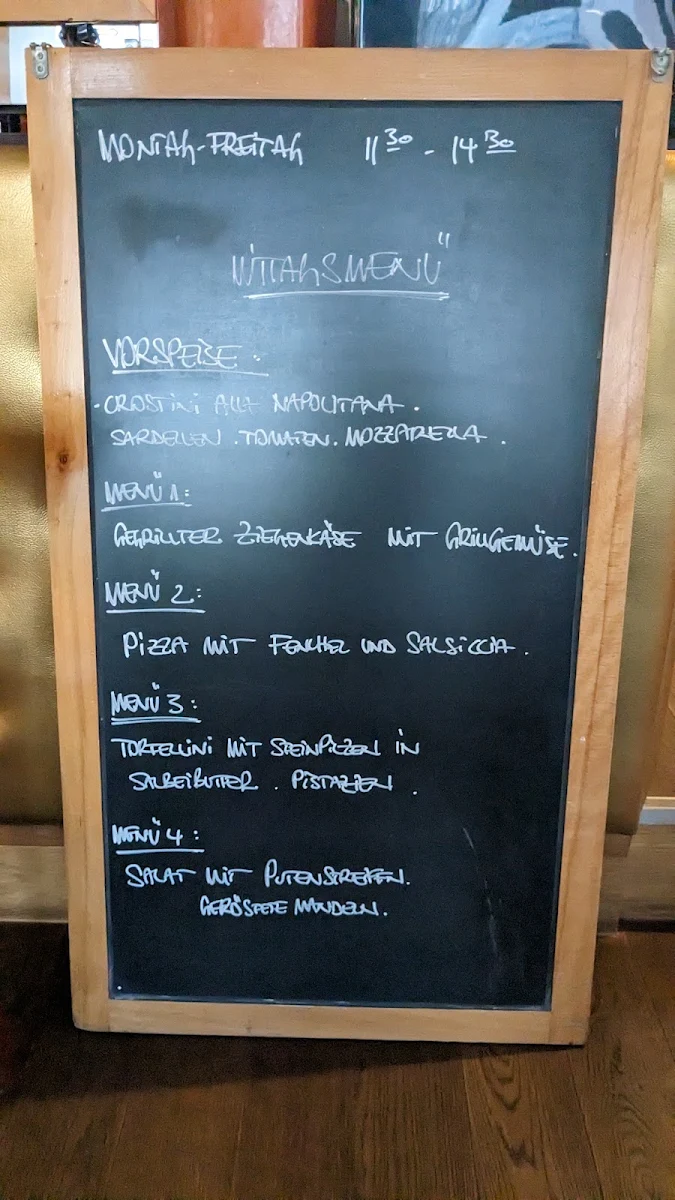 MONTAG-FREITAG 11 30 - 14 30
MITTAGSMENÜ"
VORSPEISE:
·CROSTINI ALLA NAPOLITANA.
SARDELLEN. TOMATEN. MOZZARELLA.
MENÜ 1:
GEGRILLTER ZIEGENKÄSE MIT GRILLGEMÜSE.
MENÜ 2:
PIZZA MIT FENCHEL UND SALSICCIA.
MENÜ 3:
TORTELLINI MIT STEINPILZEN IN
SALBEIBUTTER. PISTAZIEN.
MENÜ 4:
SALAT MIT PUTENSTREIFEN.
GERÖSTETE MANDELN.